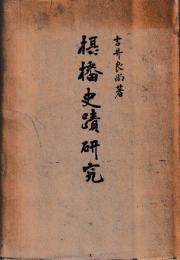 吉井良尚著
摂播史蹟研究